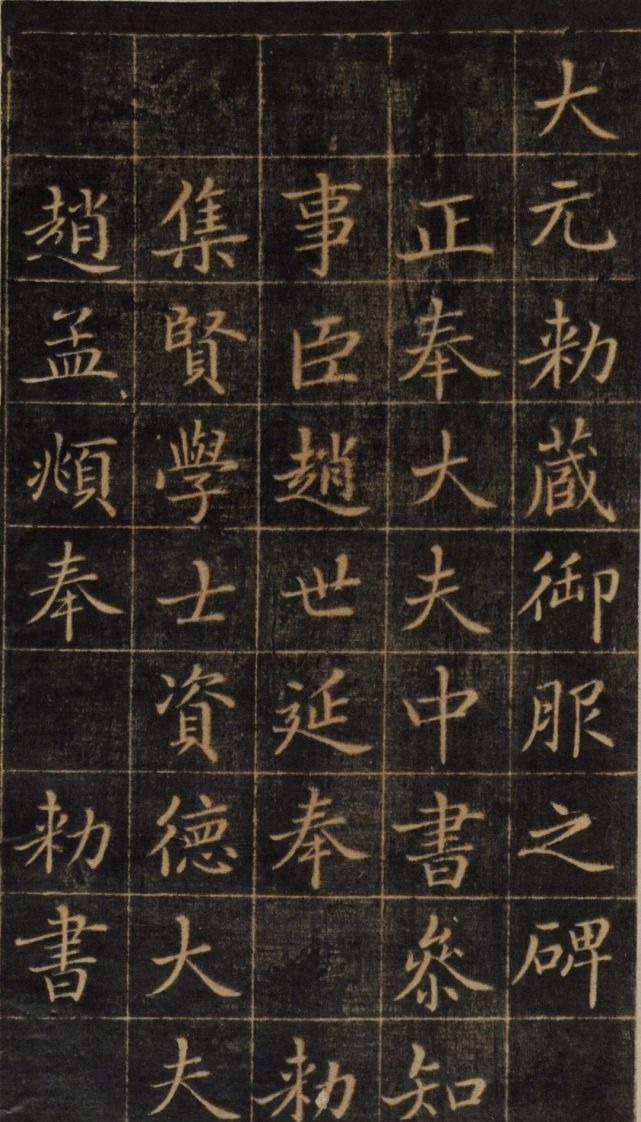 大元勑蔵御服之碑
正奉大夫中書叅知
事臣趙世延奉勑
集賢學士資德大夫
趙孟頫奉勑書